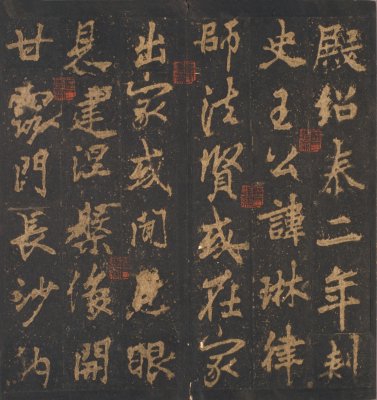 殿紹泰二年刺
史王公諱琳律
師法賢或在家
出家或聞見眼
見建涅槃像開
甘露門長沙